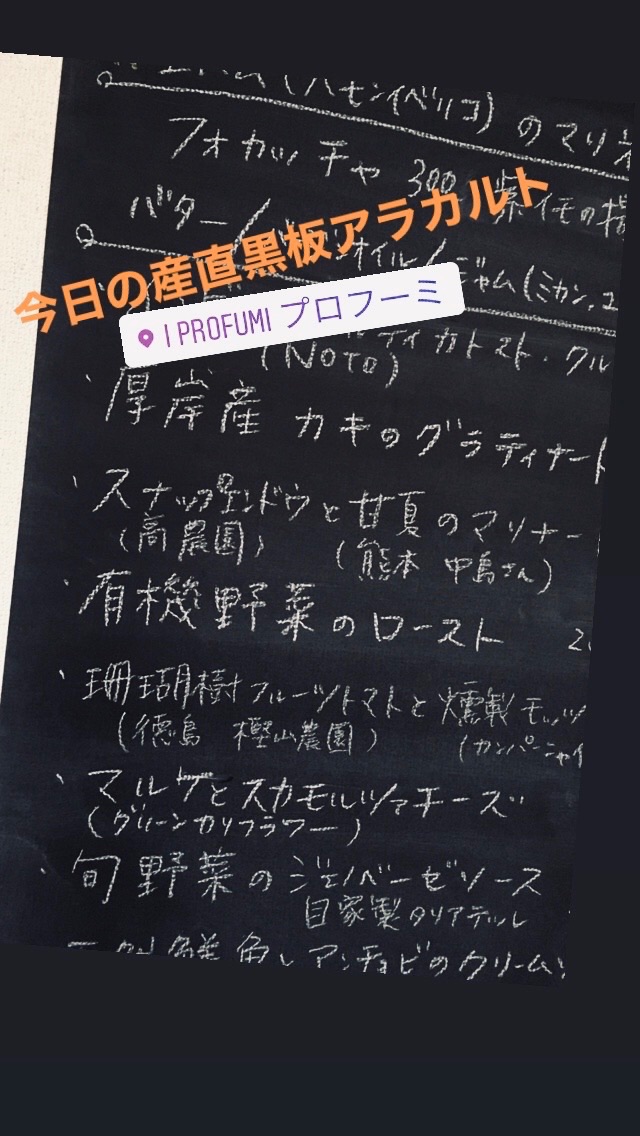 (ハモンイベリコ)のマリネ
フォカッチャ 300 紫イモの
バター/ オイル/ジャム(ミカン,ユ
今日の産直黒板アラカルト
I PROFUMI プロフーミ
ティカトマト・クル
(NOTO)
・厚岸産 カキのグラティナート
・スナップエンドウと甘夏のマリナー
(高農園) (熊本 中島さん)
・有機野菜のロースト
・珊瑚樹フルーツトマトと燻製モッツ
(徳島 樫山農園) (カンパーニャ
・マルケとスカモルツァチーズ
(グリーンカリフラワー)
・旬野菜のジェノベーゼソース
自家製タリアテッレ
鮮魚とアンチョビのクリーム